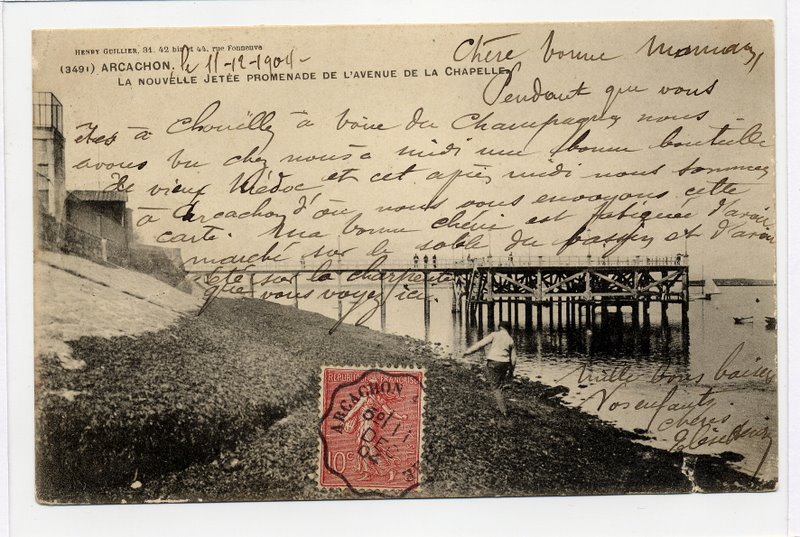 HENRY GUILLIER, 31. 42 bis et 44, rue Fonneuve
(3491) ARCACHON. le 11-12-1904-
LA NOUVELLE JETÉE PROMENADE DE L'AVENUE DE LA CHAPELLE
Chère bonne Maman,
Pendant que vous
êtes à à boire du Champagne nous
avons bu chez nous à midi une bonne bouteille
de vieux Médoc et cet après midi nous sommes
à Arcachon d'où nous vous envoyons cette
carte. Ma bonne chérie est fatiguée d'avoir
marché sur le sable du bassin et d'avoir
été sur la charpente
que vous voyez ici.
Mille bons baisers
Vos enfants
chéris
REPUBLIQUE FRANÇAISE
10c
ARCACHON
11
DEC
04